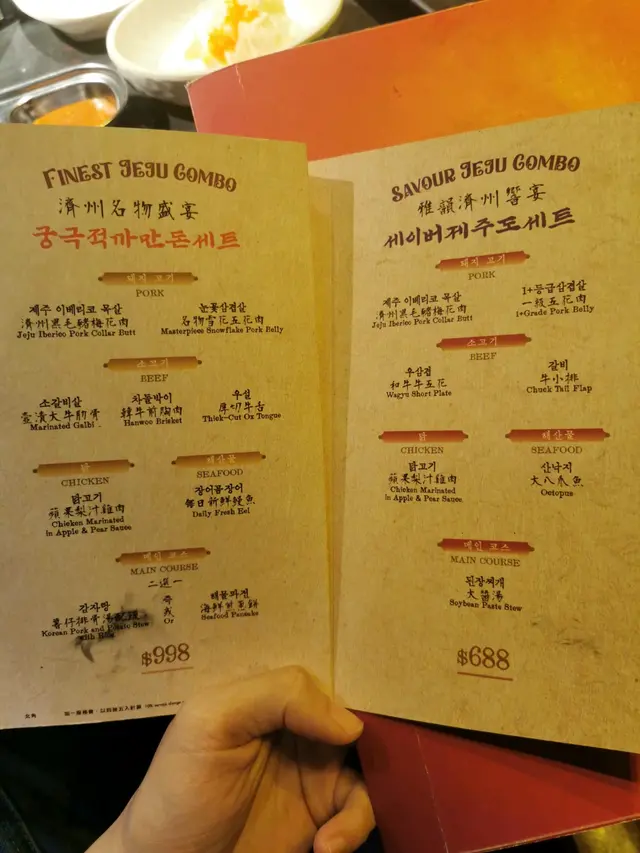 FINEST JEJU COMBO
濟州名物盛宴
궁극적까만돈세트
돼지 고기
PORK
제주 이베리코 목살
濟州黑毛豬梅花肉
Jeju Iberico Pork Collar Butt
눈꽃삼겹살
名物雪花五花肉
Masterpiece Snowflake Pork Belly
소고기
BEEF
소갈비살
壹漬大牛肋骨
Marinated Galbi
차돌박이
韓牛前胸肉
Hanwoo Brisket
우설
厚切牛舌
Thick-Cut Ox Tongue
닭
CHICKEN
닭고기
蘋果梨汁雞肉
Chicken Marinated
in Apple & Pear Sauce
해산물
SEAFOOD
장어꼼장어
每日新鮮鰻魚
Daily Fresh Eel
메인 코스
MAIN COURSE
二選一
감자탕
薯仔排骨湯配飯
Korean Pork and Potato Stew
with Rice
즉
或
Or
해물파전
海鮮煎蔥餅
Seafood Pancake
$998
SAVOUR JEJU COMBO
雅韻濟州饗宴
세이버제주도세트
돼지 고기
PORK
제주 이베리코 목살
濟州黑毛豬梅花肉
Jeju Iberico Pork Collar Butt
1+등급삼겹살
一級五花肉
1+Grade Pork Belly
소고기
BEEF
우삼겹
和牛牛五花
Wagyu Short Plate
갈비
牛小排
Chuck Tail Flap
닭
CHICKEN
닭고기
蘋果梨汁雞肉
Chicken Marinated
in Apple & Pear Sauce
해산물
SEAFOOD
산낙지
大八爪魚
Octopus
메인 코스
MAIN COURSE
된장찌개
大醬湯
Soybean Paste Stew
$688